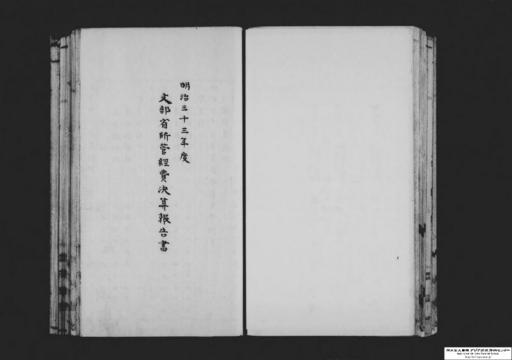 明治三十三年度
文部省所管経費決算報告書